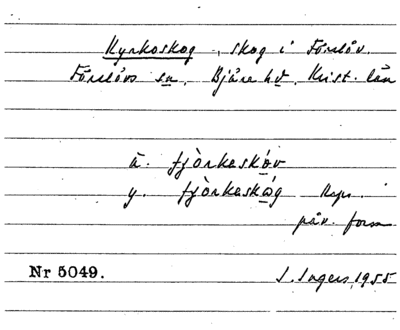 Kyrkoskog, skog i Förslöv.
Förslövs sn. Bjäre hd. Krist. län
ä. fjòrkaskòv
y. fjòrkaskåg Rspr.
påv. form
Nr 5049. I. Ingers 1955